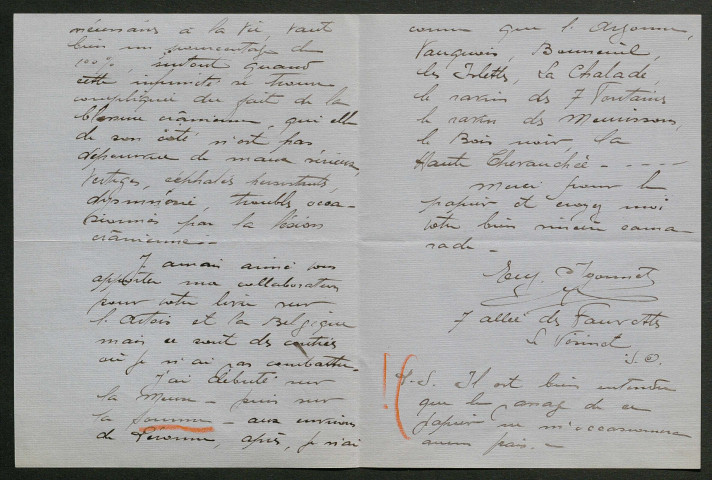 nécessaires à la vie, vaut
bien un pourcentage de
100%, surtout quand
cette infirmité se trouve
compliquée du fait de la
blessure crânienne, qui elle
de son côté n'est pas
dépourvue de maux sérieux,
vertiges, céphalées
dysmnésie, troubles occa-
sionnés par la lésion
crânienne -
J'aurais aimé vous
apporter ma collaboration
pour votre livre sur
l'Artois et la Belgique
mais ce sont des contrées
où je n'ai pas combattu -
J'ai débuté sur
la Meuse - puis sur
la Somme - aux environs
de Péronne, après, je n'ai
connu que l'Argonne,
Vauquois, Boureuil,
les Islettes, La Chalade,
le ravin des 7 Fontaines
le ravin des Meurissons,
le Bois noir, la
Haute Chevauchée - - - - -
Merci pour le
papier et croyez moi
votre bien sincère cama-
rade -
7 allée des Fauvettes
Le Vésinet
S. O.
P.S. Il est bien entendu
que le de ce
papier ne m'occasionnera
aucun frais. -